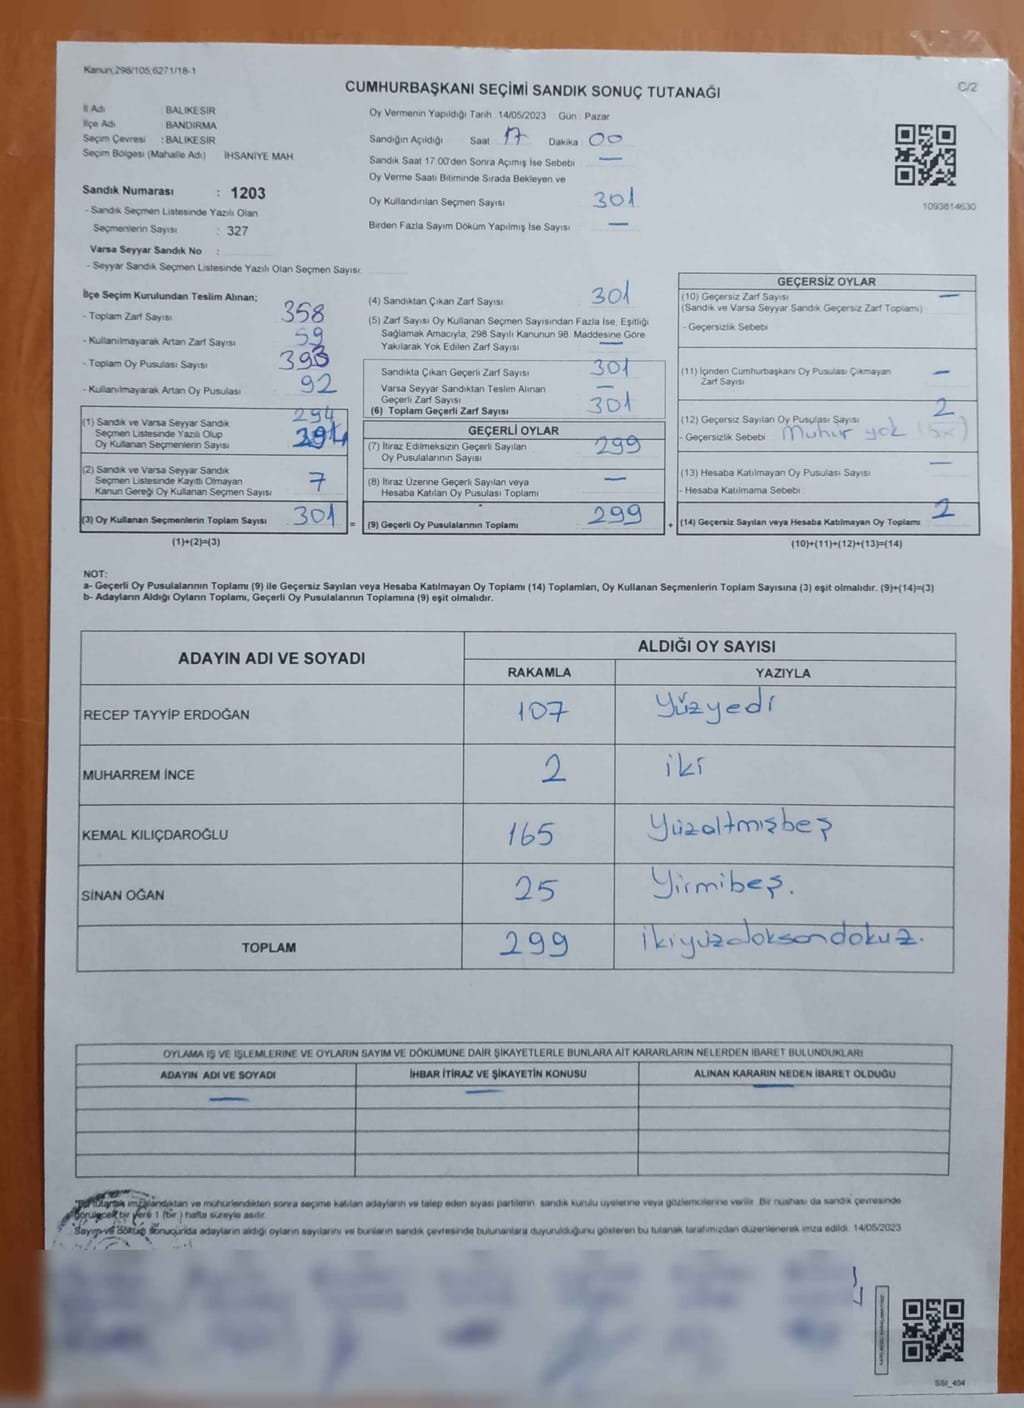 Kanun;298/105;6271/18-1
C/2
CUMHURBAŞKANI SEÇİMİ SANDIK SONUÇ TUTANAĞI
İl Adı : BALIKESİR
İlçe Adı : BANDIRMA
Seçim Çevresi : BALIKESİR
Seçim Bölgesi (Mahalle Adı) İHSANİYE MAH.
Sandık Numarası : 1203
- Sandık Seçmen Listesinde Yazılı Olan
Seçmenlerin Sayısı : 327
Varsa Seyyar Sandık No :
- Seyyar Sandık Seçmen Listesinde Yazılı Olan Seçmen Sayısı:
Oy Vermenin Yapıldığı Tarih : 14/05/2023 Gün : Pazar
Sandığın Açıldığı Saat 17 Dakika 00
Sandık Saat 17:00'den Sonra Açımış İse Sebebi —
Oy Verme Saati Bitiminde Sırada Bekleyen ve
Oy Kullandırılan Seçmen Sayısı 301
Birden Fazla Sayım Döküm Yapılmış İse Sayısı —
1093814630
İlçe Seçim Kurulundan Teslim Alınan;
- Toplam Zarf Sayısı 358
- Kullanılmayarak Artan Zarf Sayısı 59
- Toplam Oy Pusulası Sayısı 393
- Kullanılmayarak Artan Oy Pusulası 92
294
(1) Sandık ve Varsa Seyyar Sandık
Seçmen Listesinde Yazılı Olup
Oy Kullanan Seçmenlerin Sayısı
(2) Sandık ve Varsa Seyyar Sandık
Seçmen Listesinde Kayıtlı Olmayan
Kanun Gereği Oy Kullanan Seçmen Sayısı 7
(3) Oy Kullanan Seçmenlerin Toplam Sayısı 301 =
(1)+(2)=(3)
(4) Sandıktan Çıkan Zarf Sayısı 301
(5) Zarf Sayısı Oy Kullanan Seçmen Sayısından Fazla İse, Eşitliği
Sağlamak Amacıyla, 298 Sayılı Kanunun 98. Maddesine Göre
Yakılarak Yok Edilen Zarf Sayısı —
Sandıkta Çıkan Geçerli Zarf Sayısı 301
Varsa Seyyar Sandıktan Teslim Alınan
Geçerli Zarf Sayısı —
(6) Toplam Geçerli Zarf Sayısı 301
GEÇERLİ OYLAR
(7) İtiraz Edilmeksizin Geçerli Sayılan
Oy Pusulalarının Sayısı 299
(8) İtiraz Üzerine Geçerli Sayılan veya
Hesaba Katılan Oy Pusulası Toplamı —
(9) Geçerli Oy Pusulalarının Toplamı 299 +
GEÇERSİZ OYLAR
(10) Geçersiz Zarf Sayısı —
(Sandık ve Varsa Seyyar Sandık Geçersiz Zarf Toplamı)
- Geçersizlik Sebebi
(11) İçinden Cumhurbaşkanı Oy Pusulası Çıkmayan
Zarf Sayısı —
(12) Geçersiz Sayılan Oy Pusulası Sayısı 2
- Geçersizlik Sebebi Mühür yok
(13) Hesaba Katılmayan Oy Pusulası Sayısı —
- Hesaba Katılmama Sebebi
(14) Geçersiz Sayılan veya Hesaba Katılmayan Oy Toplamı 2
(10)+(11)+(12)+(13)=(14)
NOT:
a- Geçerli Oy Pusulalarının Toplamı (9) ile Geçersiz Sayılan veya Hesaba Katılmayan Oy Toplamı (14) Toplamları, Oy Kullanan Seçmenlerin Toplam Sayısına (3) eşit olmalıdır. (9)+(14)=(3)
b- Adayların Aldığı Oyların Toplamı, Geçerli Oy Pusulalarının Toplamına (9) eşit olmalıdır.
ADAYIN ADI VE SOYADI
ALDIĞI OY SAYISI
RAKAMLA YAZIYLA
RECEP TAYYİP ERDOĞAN 107 Yüzyedi
MUHARREM İNCE 2 iki
KEMAL KILIÇDAROĞLU 165 Yüzaltmışbeş
SİNAN OĞAN 25 Yirmibeş.
TOPLAM 299 ikiyüzdoksandokuz.
OYLAMA İŞ VE İŞLEMLERİNE VE OYLARIN SAYIM VE DÖKÜMÜNE DAİR ŞİKAYETLERLE BUNLARA AİT KARARLARIN NELERDEN İBARET BULUNDUKLARI
ADAYIN ADI VE SOYADI İHBAR İTİRAZ VE ŞİKAYETİN KONUSU ALINAN KARARIN NEDEN İBARET OLDUĞU
— — —
tutanak imzalandıktan ve mühürlendikten sonra seçime katılan adayların ve talep eden siyasi partilerin, sandık kurulu üyelerine veya gözlemcilerine verilir. Bir nüshası da sandık çevresinde
görülecek bir yere 1 (bir ) hafta süreyle asılır.
Sayım ve döküm sonucunda adayların aldığı oyların sayılarını ve bunların sandık çevresinde bulunanlara duyurulduğunu gösteren bu tutanak tarafımızdan düzenlenerek imza edildi. 14/05/2023
SSI_404